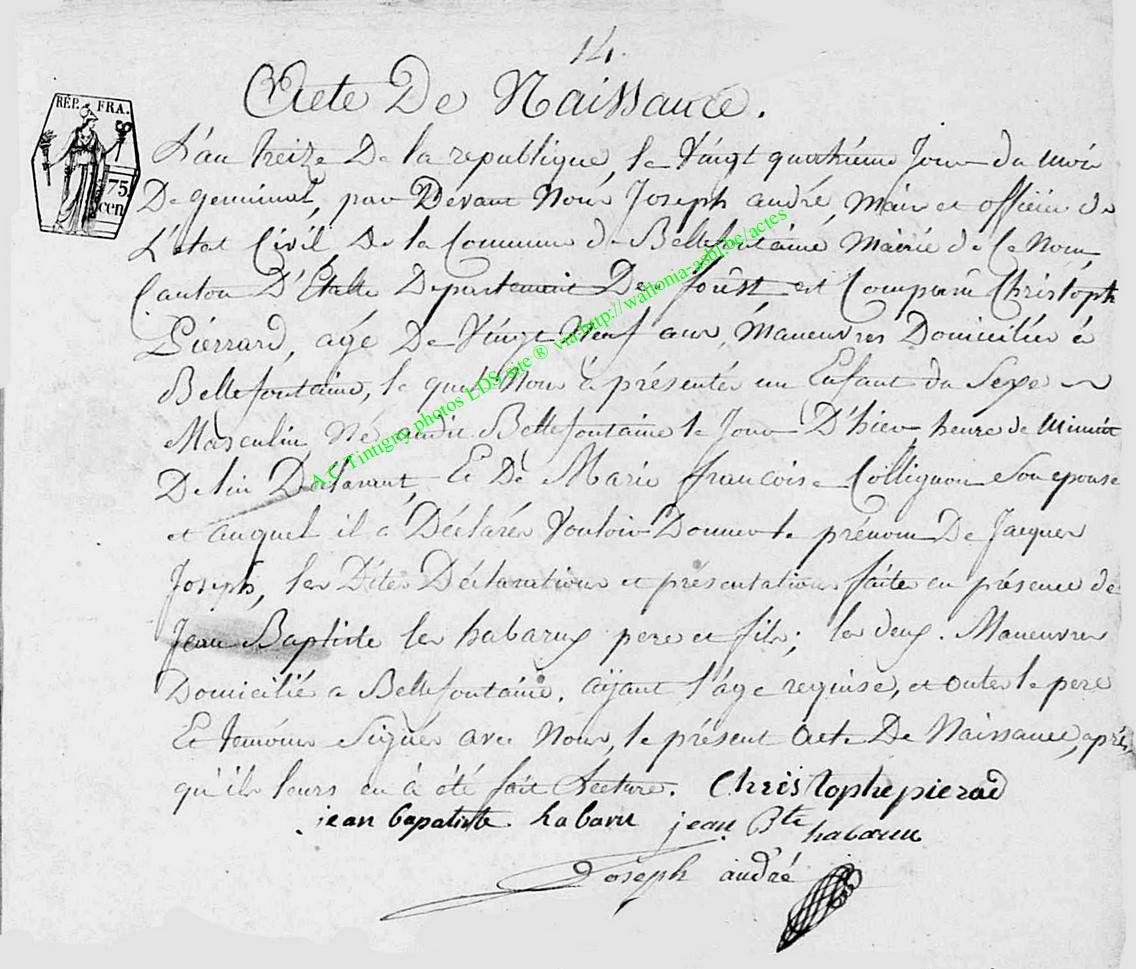 14.
Acte De Naissance.
RÉP. FRA.
75
cen
L'an treize De la republique, le Vingt quatrieme Jour du mois
De germinal, par Devant Nous Joseph andré, Maire et officier de
L'état Civil De la Commune de Bellefontaine Mairie de Ce Nom
Canton D'Etalle Departement De forêst est Comparû Christoph
Piérrard, age De Vingt Neuf ans, Maneuvres Domicilié à
Bellefontaine, le quel Nous à présentés un Enfant du Sexe
Masculin Né audit Bellefontaine le Jour D'hier heure de Minuit
De lui Déclarant, Et De Marie francoise Collignon Son epouse
et auquel il a Déclarés Vouloir Donner le prénom De Jacques
Joseph, les Dites Déclarations et présentations faite en présence de
Jean Baptiste les habarux pere et fils; les deux. Maneuvres
Domicilié a Bellefontaine. aÿant l'âge requise, et ont le pere
Et temoins Signés avec Nous, le présent Acte De Naissance, aprés
qu'ils leurs en à été fait Lecture. Christophe pierad
jean bapatiste habaru jean Bte habarux
Joseph andré
A.C. Tintigny photos EDS site ® via http://wallonia-asbl.be/actes